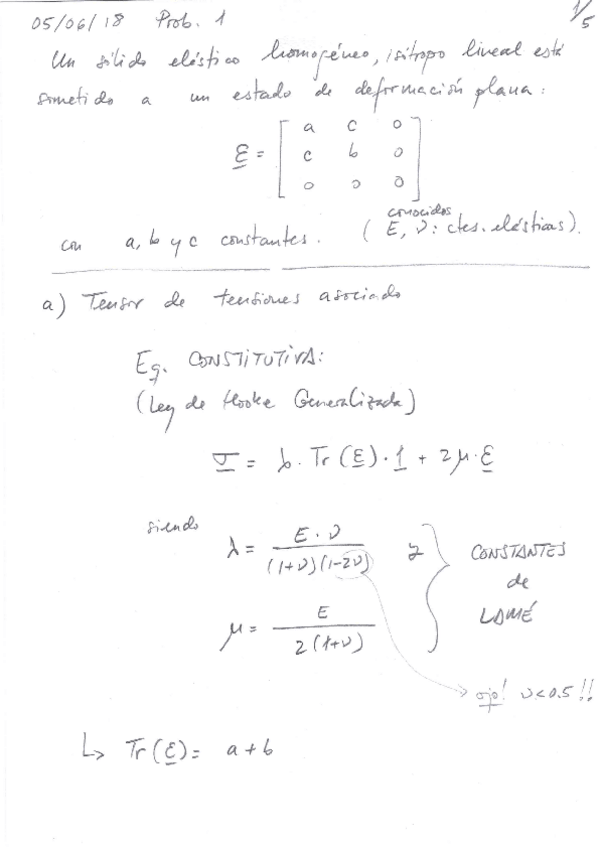 05/06/18 Prob. 1
1/5
Un sólido elástico homogéneo, isótropo lineal está
sometido a un estado de deformación plana:
ε = [ a c 0
c b 0
0 0 0 ]
con a, b y c constantes. (E, ν: ctes. elásticas).
conocidos
a) Tensor de tensiones asociado
Eq. CONSTITUTIVA:
(Ley de Hooke Generalizada)
σ = λ · Tr(ε) · 1 + 2μ · ε
siendo
λ = E · ν / (1+ν)(1-2ν) y
μ = E / 2(1+ν)
CONSTANTES
de
LAMÉ
ojo! ν<0.5!!
↳ Tr(ε) = a + b